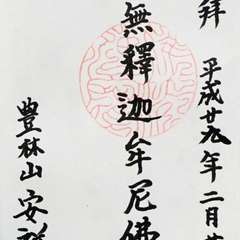 拜
平成廿九年二月
無釋迦牟尼佛
豊林山安